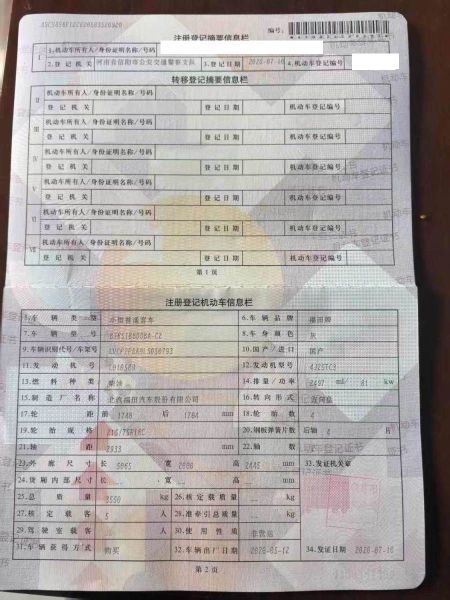 注册登记摘要信息栏
编号:
I 1.机动车所有人/身份证明名称/号码
2.登记机关 河南省信阳市公安交通警察支队 3.登记日期 2020-07-10 4.机动车登记编号
转移登记摘要信息栏
II 机动车所有人/身份证明名称/号码
登记机关 登记日期 机动车登记编号
III 机动车所有人/身份证明名称/号码
登记机关 登记日期 机动车登记编号
IV 机动车所有人/身份证明名称/号码
登记机关 登记日期 机动车登记编号
V 机动车所有人/身份证明名称/号码
登记机关 登记日期 机动车登记编号
VI 机动车所有人/身份证明名称/号码
登记机关 登记日期 机动车登记编号
VII 机动车所有人/身份证明名称/号码
登记机关 登记日期 机动车登记编号
第1页
注册登记机动车信息栏
5.车辆类型 小型普通客车 6.车辆品牌 福田牌
7.车辆型号 8.车身颜色 灰
9.车辆识别代号/车架号 10.国产/进口 国产
11.发动机号 12.发动机型号
13.燃料种类 柴油 14.排量/功率 2497 ml/ 81 kw
15.制造厂名称 北汽福田汽车股份有限公司 16.转向形式
17.轮距 前 1740 后 1704 mm 18.轮胎数 4
19.轮胎规格 20.钢板弹簧片数 后轴 片
21.轴距 2933 mm 22.轴数 2
23.外廓尺寸 长 宽 高 mm 33.发证机关章
24.货厢内部尺寸 长 宽 高 mm
25.总质量 kg 26.核定载质量 kg
27.核定载客 5 人 28.准牵引总质量 kg
29.驾驶室载客 人 30.使用性质 非营运
31.车辆获得方式 购买 32.车辆出厂日期 2020-05-12 34.发证日期 2020-07-10
第2页